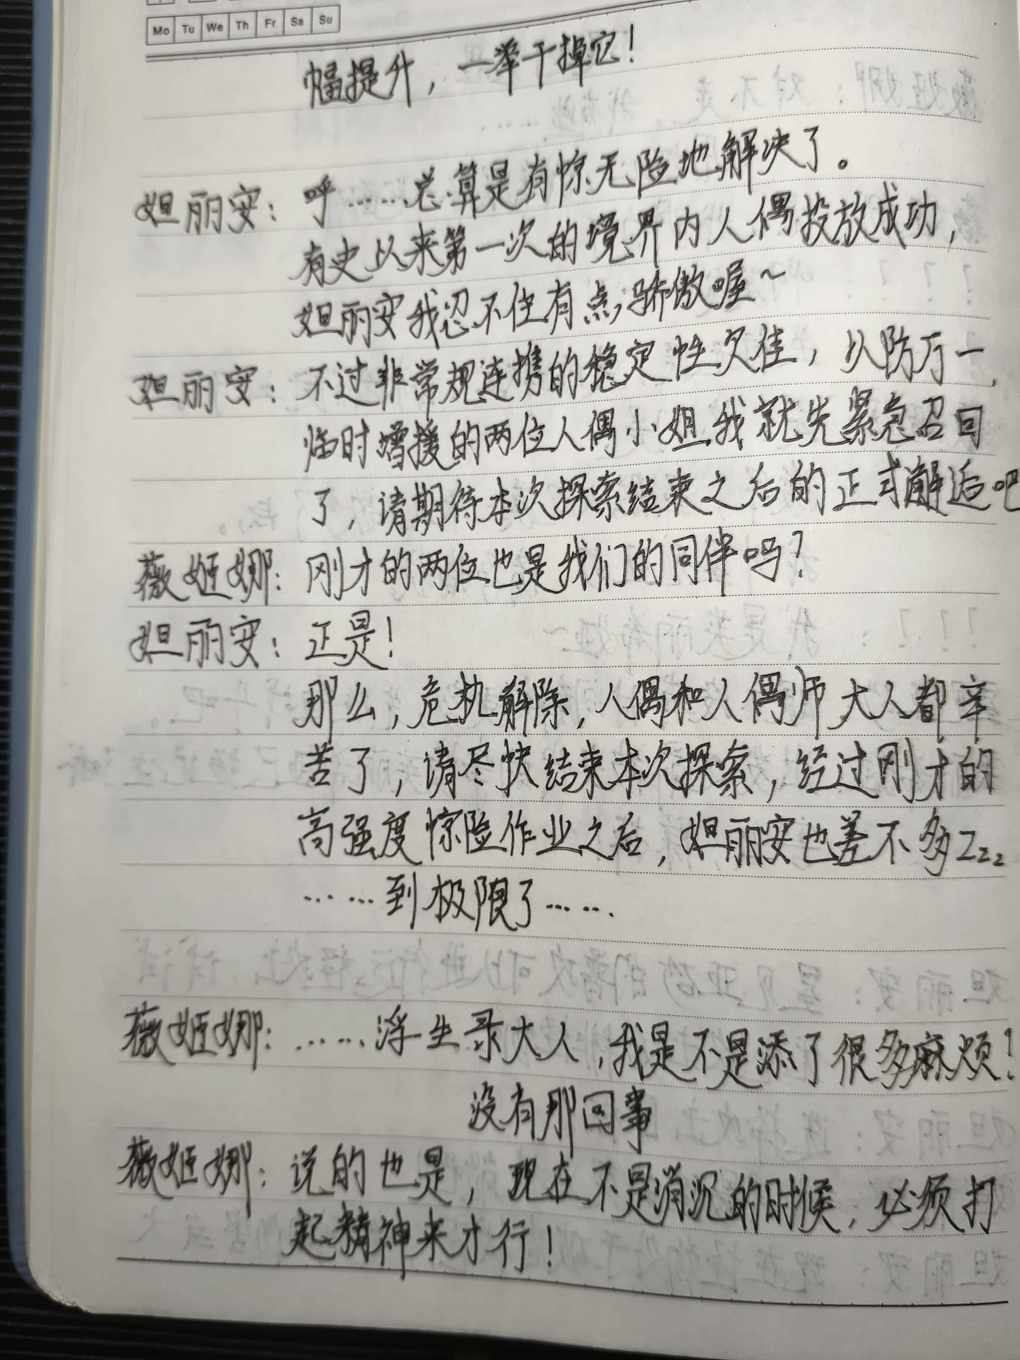 Mo Tu We Th Fr Sa Su
幅提升，一举干掉它！
妲丽安：呼……总算是有惊无险地解决了。
有史以来第一次的境界内人偶投放成功，
妲丽安我忍不住有点骄傲喔～
妲丽安：不过非常规连携的稳定性欠佳，以防万一，
临时增援的两位人偶小姐我就先紧急召回
了，请期待本次探索结束之后的正式邂逅吧
薇姬娜：刚才的两位也是我们的同伴吗？
妲丽安：正是！
那么，危机解除，人偶和人偶师大人都辛
苦了，请尽快结束本次探索，经过刚才的
高强度惊险作业之后，妲丽安也差不多Zzz
……到极限了……
薇姬娜：……浮生录大人，我是不是添了很多麻烦？
没有那回事
薇姬娜：说的也是，现在不是消沉的时候，必须打
起精神来才行！